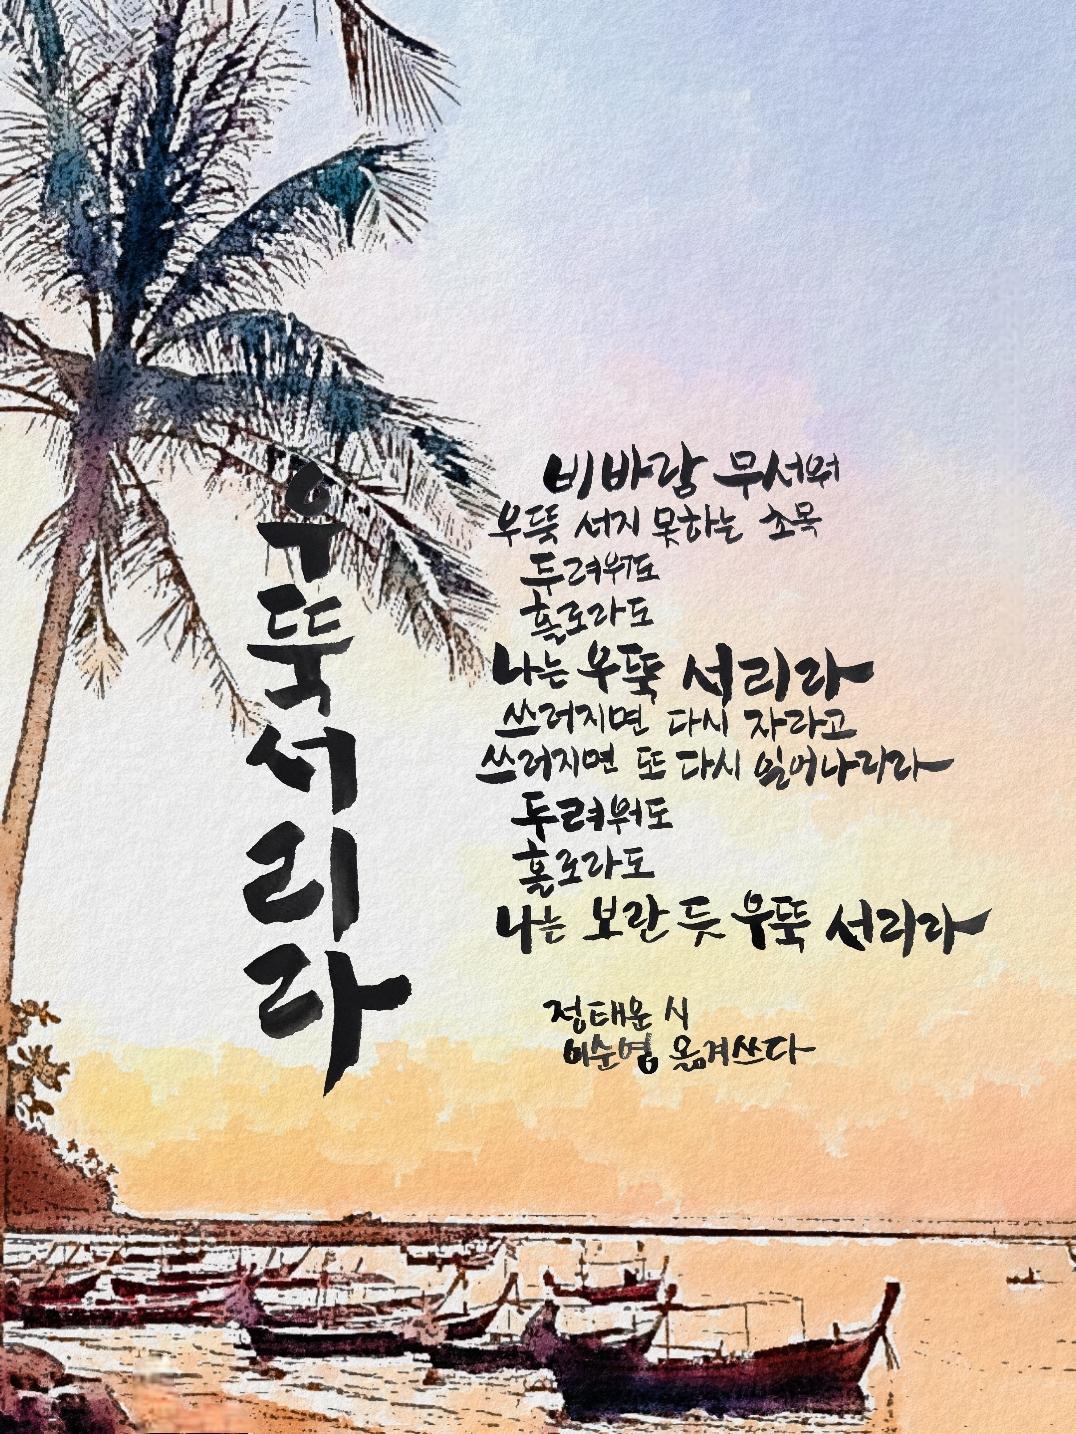 우뚝 서리라
비바람 무서워
우뚝 서지 못하는 초목
두려워도
홀로라도
나는 우뚝 서리라
쓰러지면 다시 자라고
쓰러지면 또 다시 일어나리라
두려워도
홀로라도
나는 보란 듯 우뚝 서리라
정태운 시
이순영 옮겨쓰다